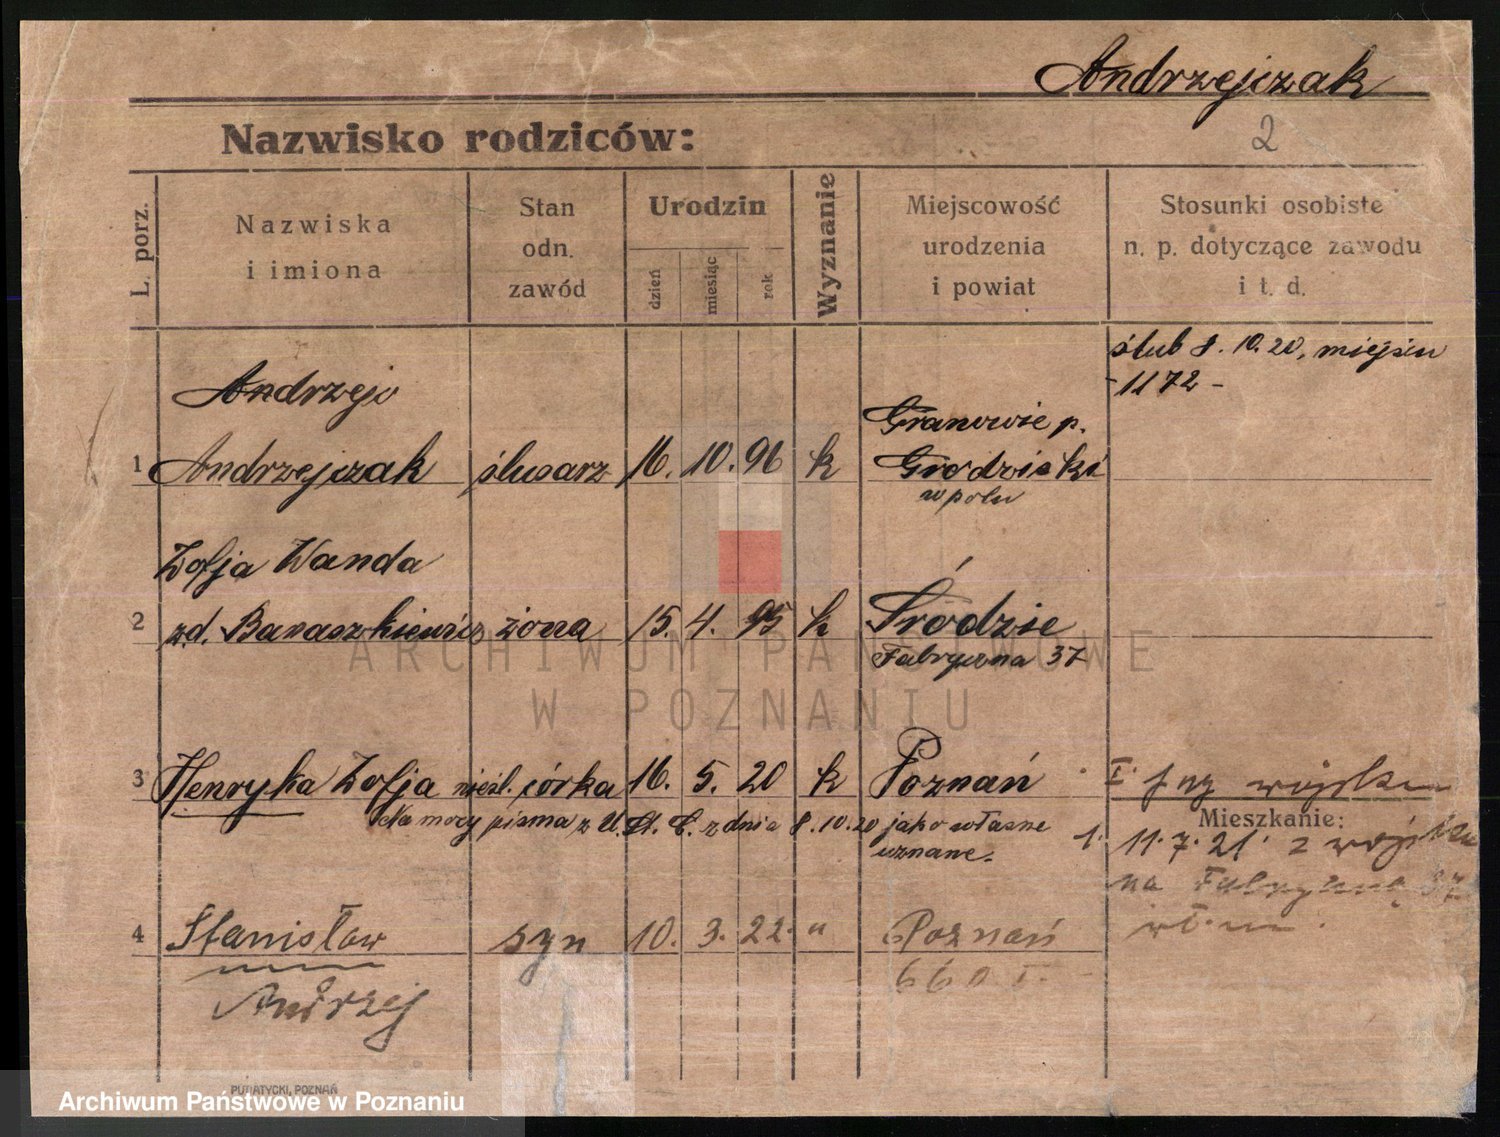 Andrzejczak
2
Nazwisko rodziców:
L. porz.
Nazwiska
i imiona
Stan
odn.
zawód
Urodzin
dzień
miesiąc
rok
Wyznanie
Miejscowość
urodzenia
i powiat
Stosunki osobiste
n. p. dotyczące zawodu
i t. d.
ślub 8. 10. 20, miejscu
- 1172 -
Andrzej
1 Andrzejczak ślusarz 16. 10. 96 k
Granowie p.
Grodziski
w polu
Zofja Wanda
2 zd. Banaszkiewicz żona 15. 4. 95 k Środzie
Fabryczna 37
3 Henryka Zofja nieśl. córka 16. 5. 20 k Poznań
Na mocy pisma z U. St. C. z dnia 8. 10. 20 jako własne
uznane.
I. wojsku
Mieszkanie:
1. 11. 7. 21. z wojska
na Fabryczną 37
4 Stanisław syn 10. 3. 22. " Poznań
660 I.
Andrzej
ARCHIWUM PAŃSTWOWE
W POZNANIU
PUTIATYCKI, POZNAŃ
Archiwum Państwowe w Poznaniu